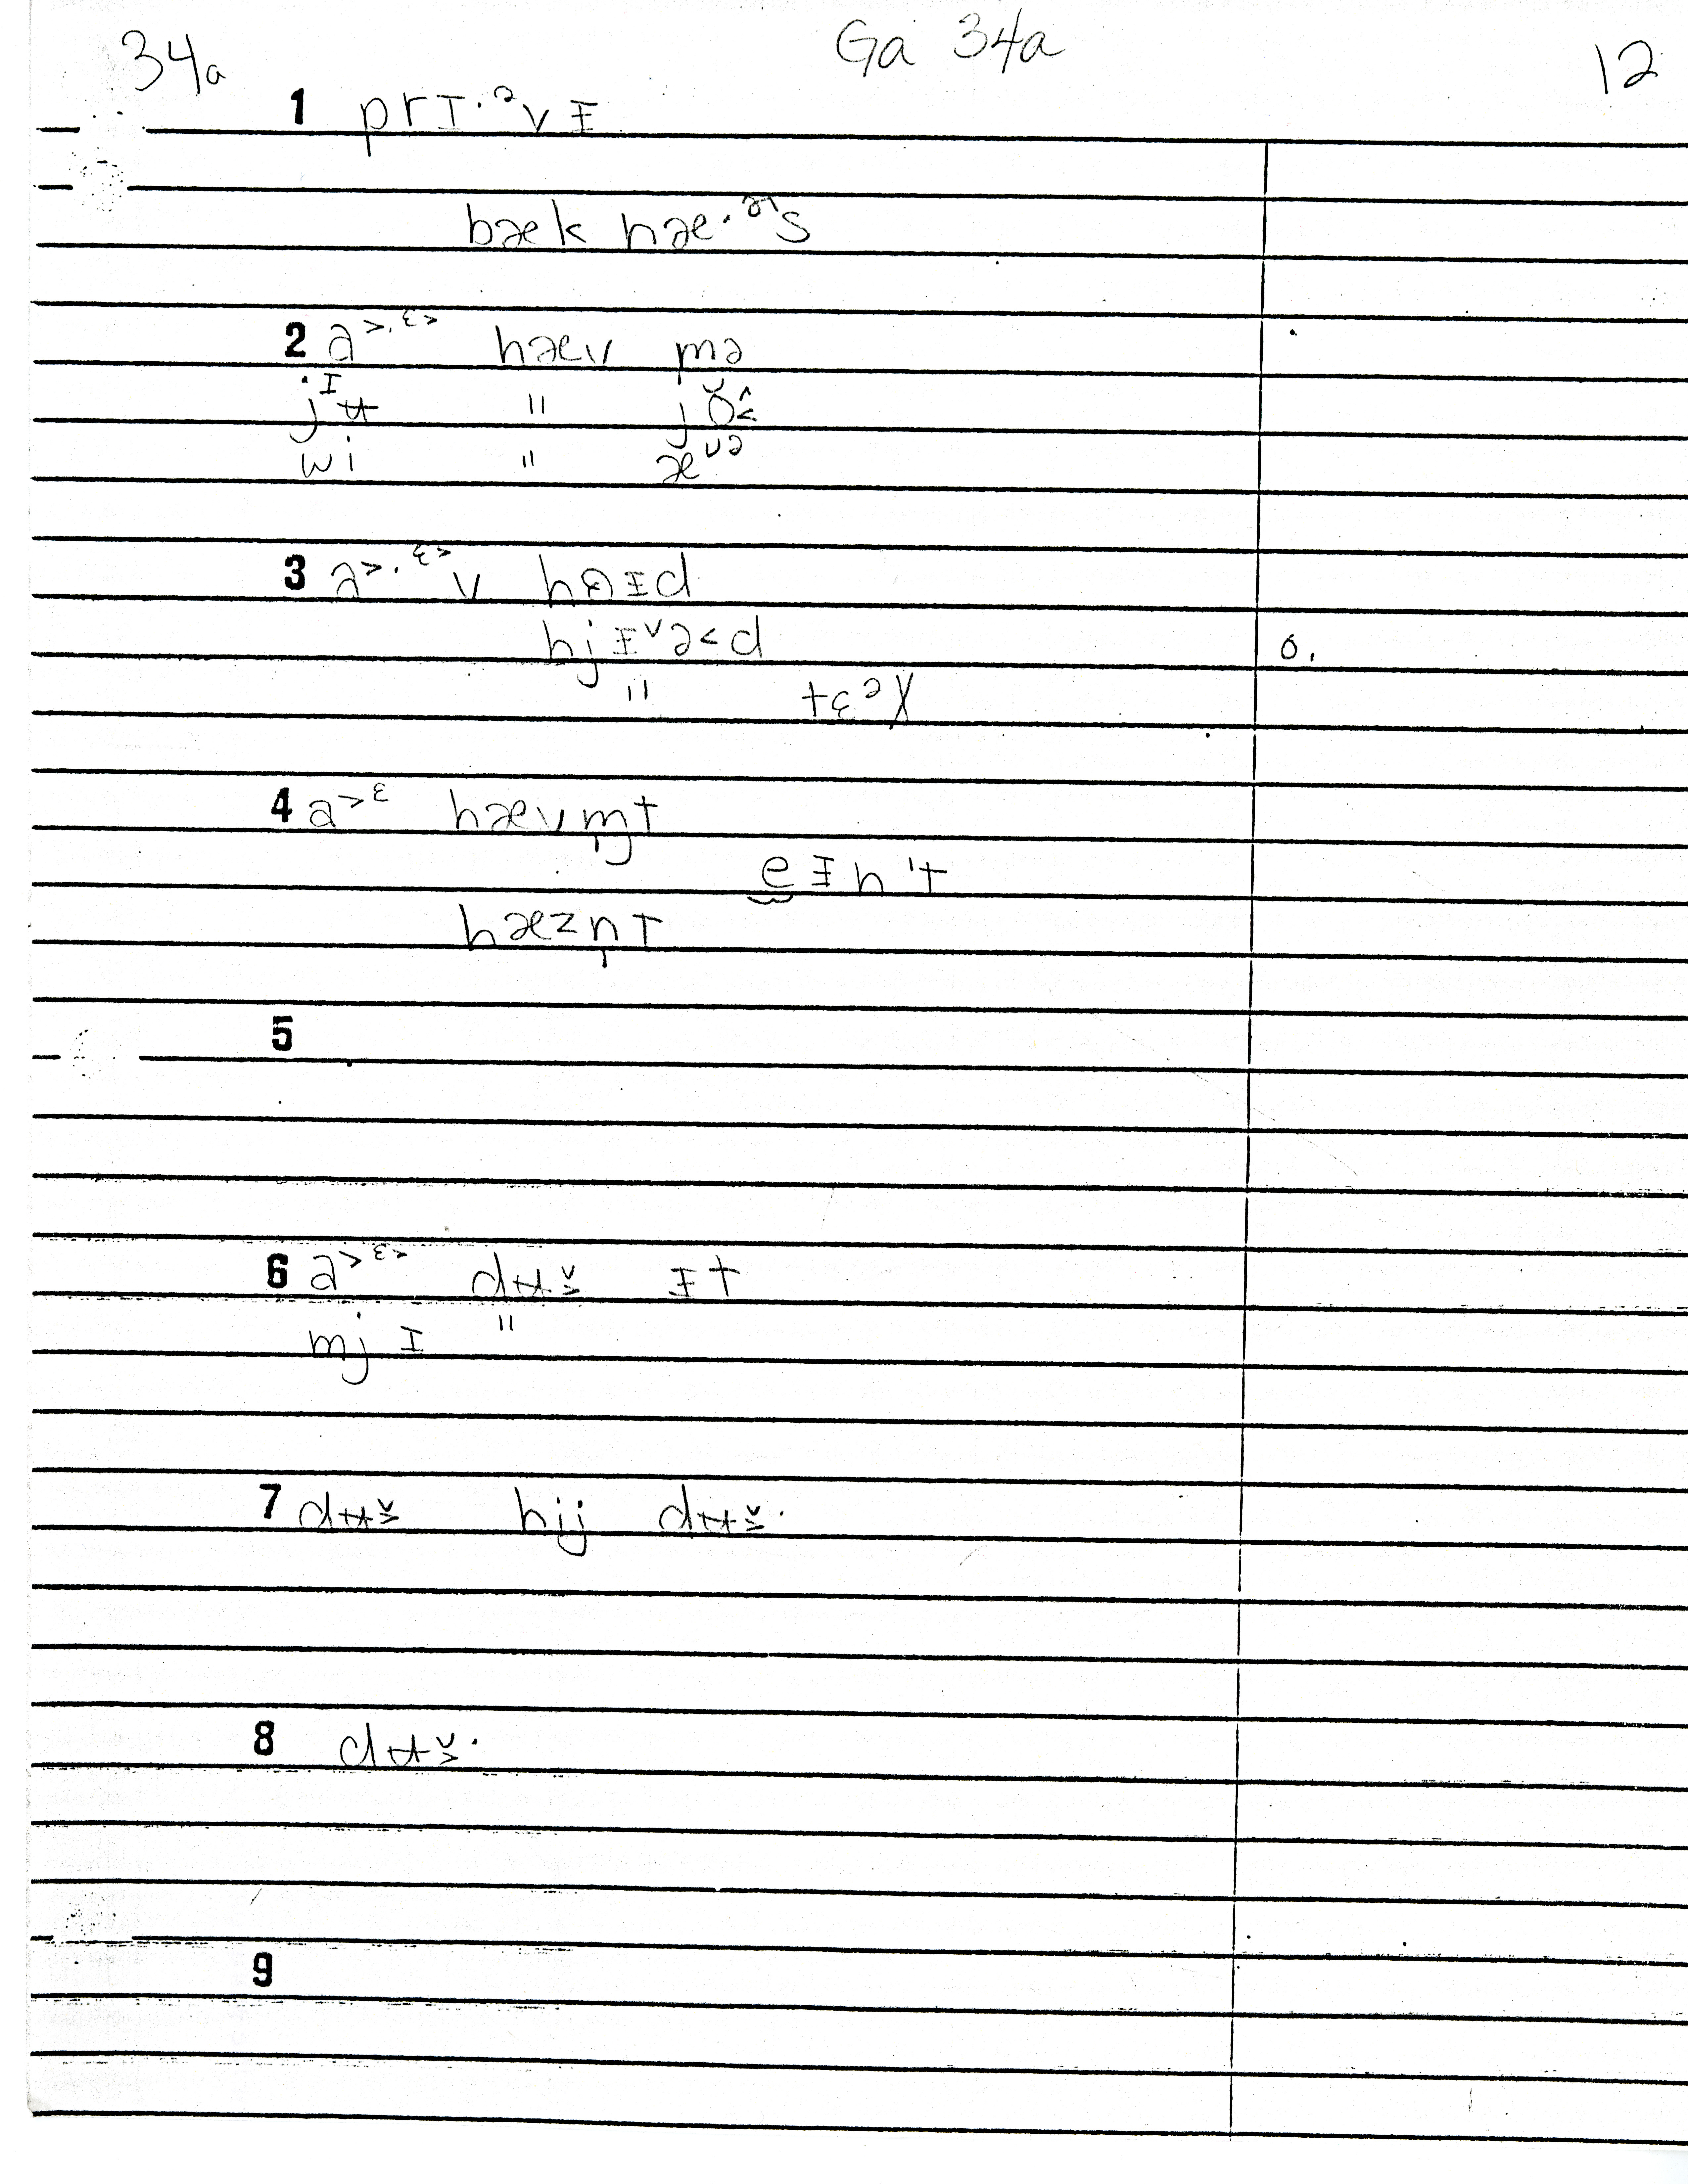 34a Ga 34a 12
1 prɪ·ᵊvɪ
bæk hæ·ᵊs
2 a˃·ᵋ˃ hæv mə
jᶦʉ " jŏ˂
wi " æᵛᵊ
3 a˃·ᵋ˃ v həɪd
hjɪ˅ə˂d o.
" tɛᵊ
4 a˃ᵋ hævm̩t
eɪn't
hæzn̩t
5
6 a˃ᵋ˃ dʉʉ̬˃ ɪt
mjɪ "
7 dʉʉ̬˃ hij dʉʉ̬˃·
8 dʉʉ̬˃·
9